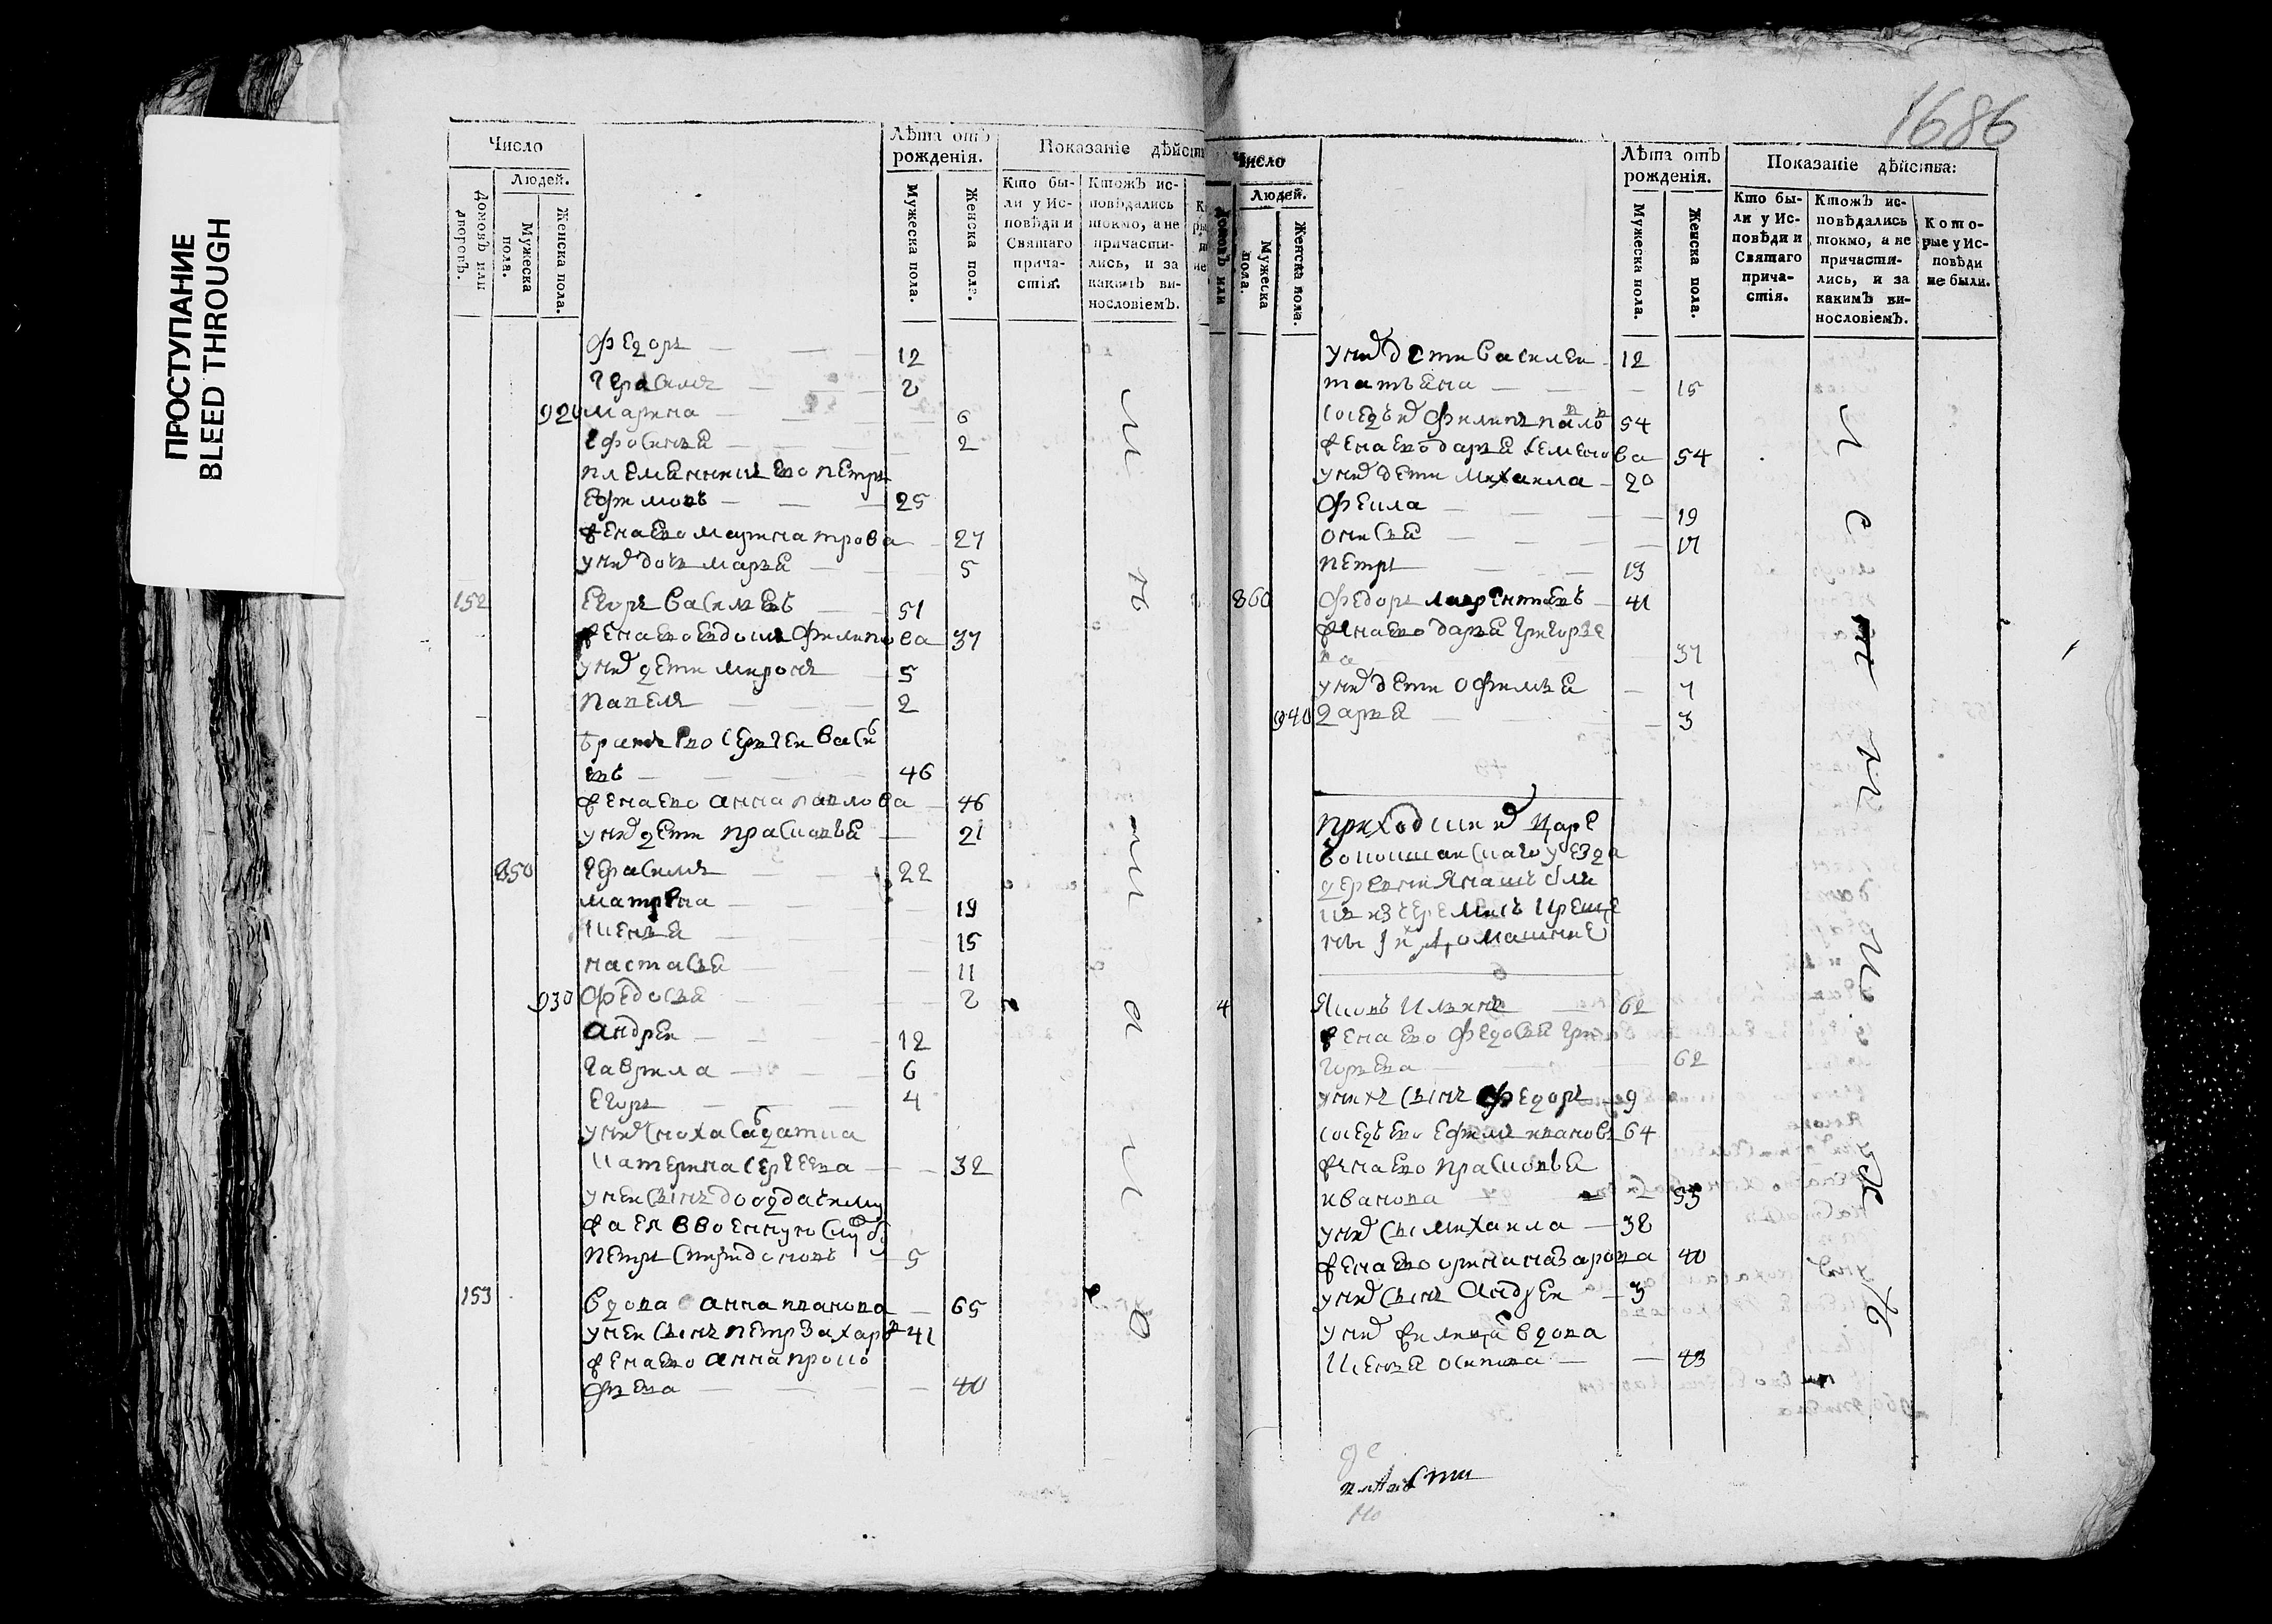 ПРОСТУПАНИЕ
BLEED THROUGH
Число
Людей.
Домовъ или дворовъ.
Мужеска пола.
Женска пола.
Лѣта отъ рожденія.
Мужеска пола.
Женска пола.
Показаніе дѣйст
Кто были у Исповѣди и Святаго причастія.
Ктожъ исповѣдались токмо, а не причастились, и за какимъ винословіемъ.
Федоръ 12
Герасимъ 2
920 Марина 6
Ефросинья 2
племянникъ ево петръ
Ефимовъ 25
жена ево марина 27
у них дочь марья 5
152 Егоръ васильевъ 51
жена ево евдокия филипова 37
у них дети миронъ 5
павелъ 2
братъ ево сергеи васи
евъ 46
жена ево анна павлова 46
у них дети прасковья 21
850 Герасимъ 22
матрена 19
ксенья 15
настасья 11
930 Федосья 2
андреи 12
гаврила 6
Егоръ 4
у них сноха салдатка
катерина сергеева 32
у неи сынъ до отдачи му
жа ея в военную службу
петръ спиридоновъ 5
153 вдова анна иванова 65
у неи сынъ петръ захаров 41
жена ево анна проко
фьева 40
1686
Число
Людей.
Мужеска пола.
Женска пола.
Лѣта отъ рожденія.
Мужеска пола.
Женска пола.
Показаніе дѣйства:
Кто были у Исповѣди и Святаго причастія.
Ктожъ исповѣдались токмо, а не причастились, и за какимъ винословіемъ.
Которые у Исповѣди не были.
у них дети василеи 12
татьяна 15
сосед их филипъ павлов 54
жена ево дарья семенова 54
у них дети михаила 20
Фекла 19
онисья 17
петръ 13
860 Федоръ лаврентьевъ 41
жена ево дарья григорье
ва 37
у них дети офимья 7
940 дарья 3
приходских царе
вококшаискаго уезда
деревни
из черемисъ креще
ны
4 Яковъ Ильинъ 62
жена ево федосья гри
горьева 62
у них сынъ федоръ 9
соседъ ево ефимъ ивановъ 64
жена ево прасковья
иванова 55
у них сы михаила 38
жена ево орина назарова 40
у них сынъ андреи 3
у них вдова
ксенья осипова 43